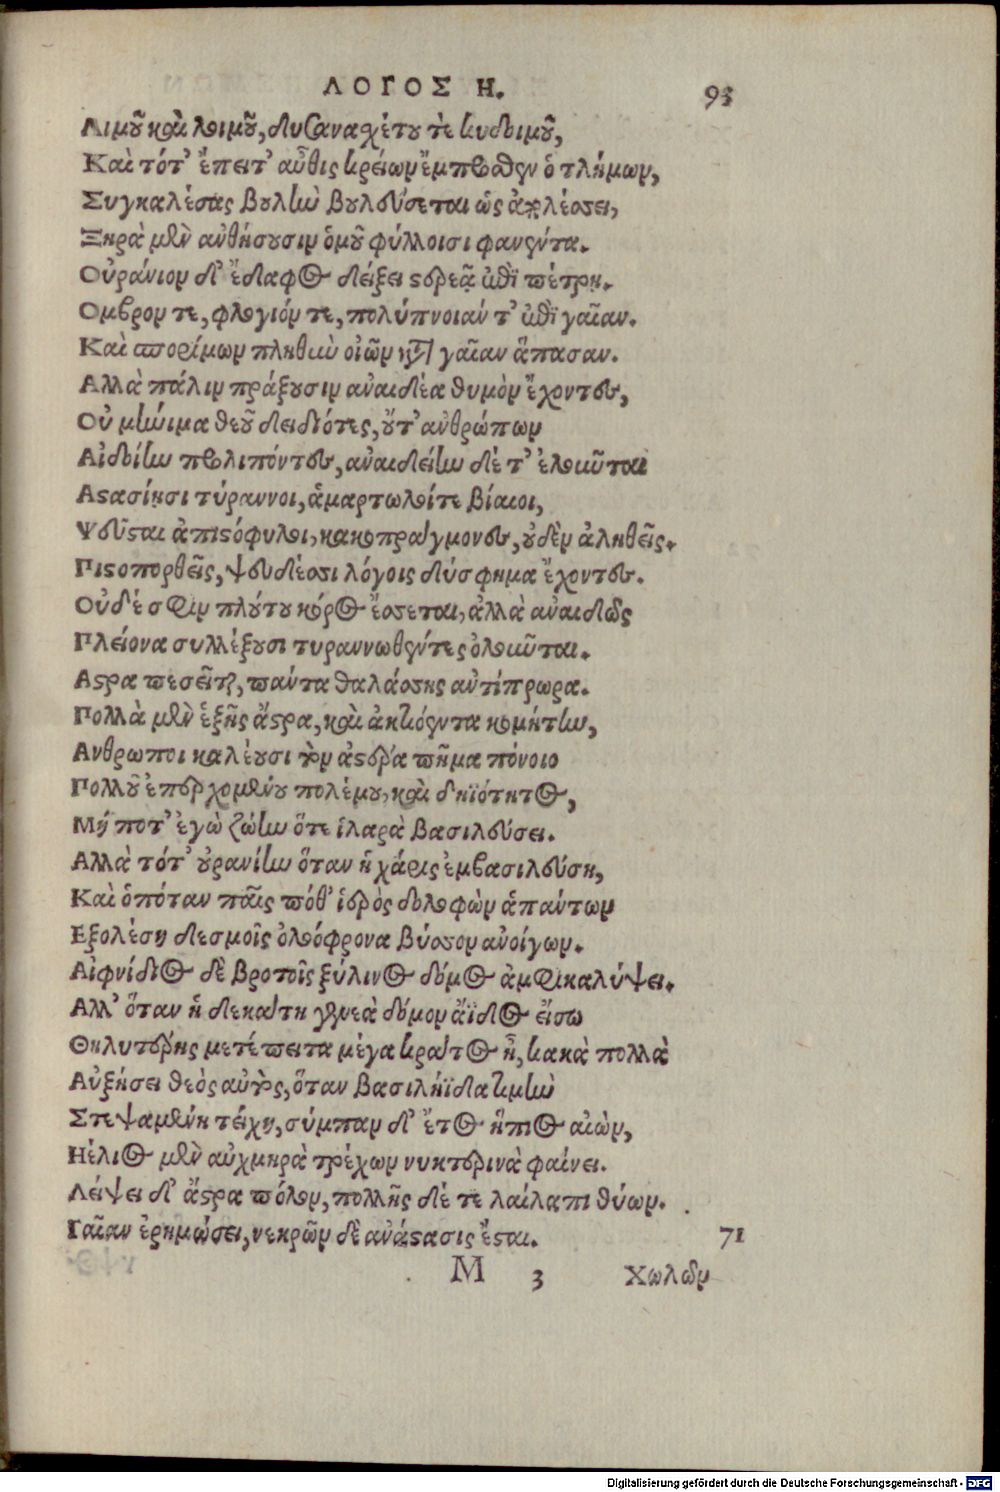 ΛΟΓΟΣ Η. 93
Λιμοῦ καὶ λοιμοῦ, δυσανασχέτου τε κυδοιμοῦ,
Καὶ τότ' ἔπειτ' αὖθις κρείων ἔμπροσθεν ὁ τλήμων,
Συγκαλέσας βουλὴν βουλεύσεται ὡς ἀπολέσσει,
Ξηρὰ μὲν ἀνθήσουσιν ὁμοῦ φύλλοισι φανέντα.
Οὐράνιον δ' ἔδαφος δείξει στερεᾷ ἐπὶ πέτρῃ.
Ομβρον τε, φλογιόν τε, πολύπνοιάν τ' ἐπὶ γαῖαν.
Καὶ σπορίμων πληθὺν οἰῶν κατὰ γαῖαν ἅπασαν.
Αλλὰ πάλιν πράξουσιν ἀναιδέα θυμὸν ἔχοντες,
Οὐ μήνιμα θεοῦ δειδιότες, οὔτ' ἀνθρώπων
Αἰδοίην προλιπόντες, ἀναιδείην δέ τ' ἑλοῦνται
Ασασίῃσι τύραννοι, ἁμαρτωλοίτε βίαιοι,
Ψεῦσται ἀπιστόφιλοι, κακοπράγμονες, οὐδὲν ἀληθεῖς.
Πιστοπορθεῖς, ψευδέσσι λόγοις δύσφημα ἔχοντες.
Οὐδέ σφιν πλούτου κόρος ἔσσεται, ἀλλὰ ἀναιδῶς
Πλείονα συλλέξουσι τυραννωθέντες ὀλοῦνται.
Αστρα πεσεῖται, πάντα θαλάσσης ἀντίπρωρα.
Πολλὰ μὲν ἑξῆς ἄστρα, καὶ ἀκτιόεντα κομήτην,
Ανθρωποι καλέουσι τὸν ἀστέρα πῆμα πόνοιο
Πολλοῦ ἐπερχομένου πολέμου, καὶ δηϊότητος,
Μή ποτ' ἐγὼ ζώην ὅτε ἱλαρὰ βασιλεύσει.
Αλλὰ τότ' οὐρανίην ὅταν ἡ χάρις ἐμβασιλεύσῃ,
Καὶ ὁπόταν παῖς πόθ' ἱερὸς δολοφὼν ἁπάντων
Εξολέσῃ δεσμοῖς ὀλοόφρονα βύσσον ἀνοίγων.
Αἰφνίδιος δὲ βροτοῖς ξύλινος δόμος ἀμφικαλύψει.
Αλλ' ὅταν ἡ δεκάτη γενεὰ δόμον ἄϊδος εἴσω
Θηλυτέρης μετέπειτα μέγα κράτος ᾖ, κακὰ πολλὰ
Αὐξήσει θεὸς αὐτὸς, ὅταν βασιληΐδα τιμὴν
Στεψαμένη τεύχῃ, σύμπαν δ' ἔτος ἤπιος αἰὼν,
Ηέλιος μὲν αὐχμηρὰ τρέχων νυκτερινὰ φαίνει.
Λείψει δ' ἄστρα πόλον, πολλῆς δέ τε λαίλαπι θύων.
Γαῖαν ἐρημώσει, νεκρῶν δὲ ἀνάστασις ἔσται. 71
M 3 Χωλῶν
Digitalisierung gefördert durch die Deutsche Forschungsgemeinschaft - DFG